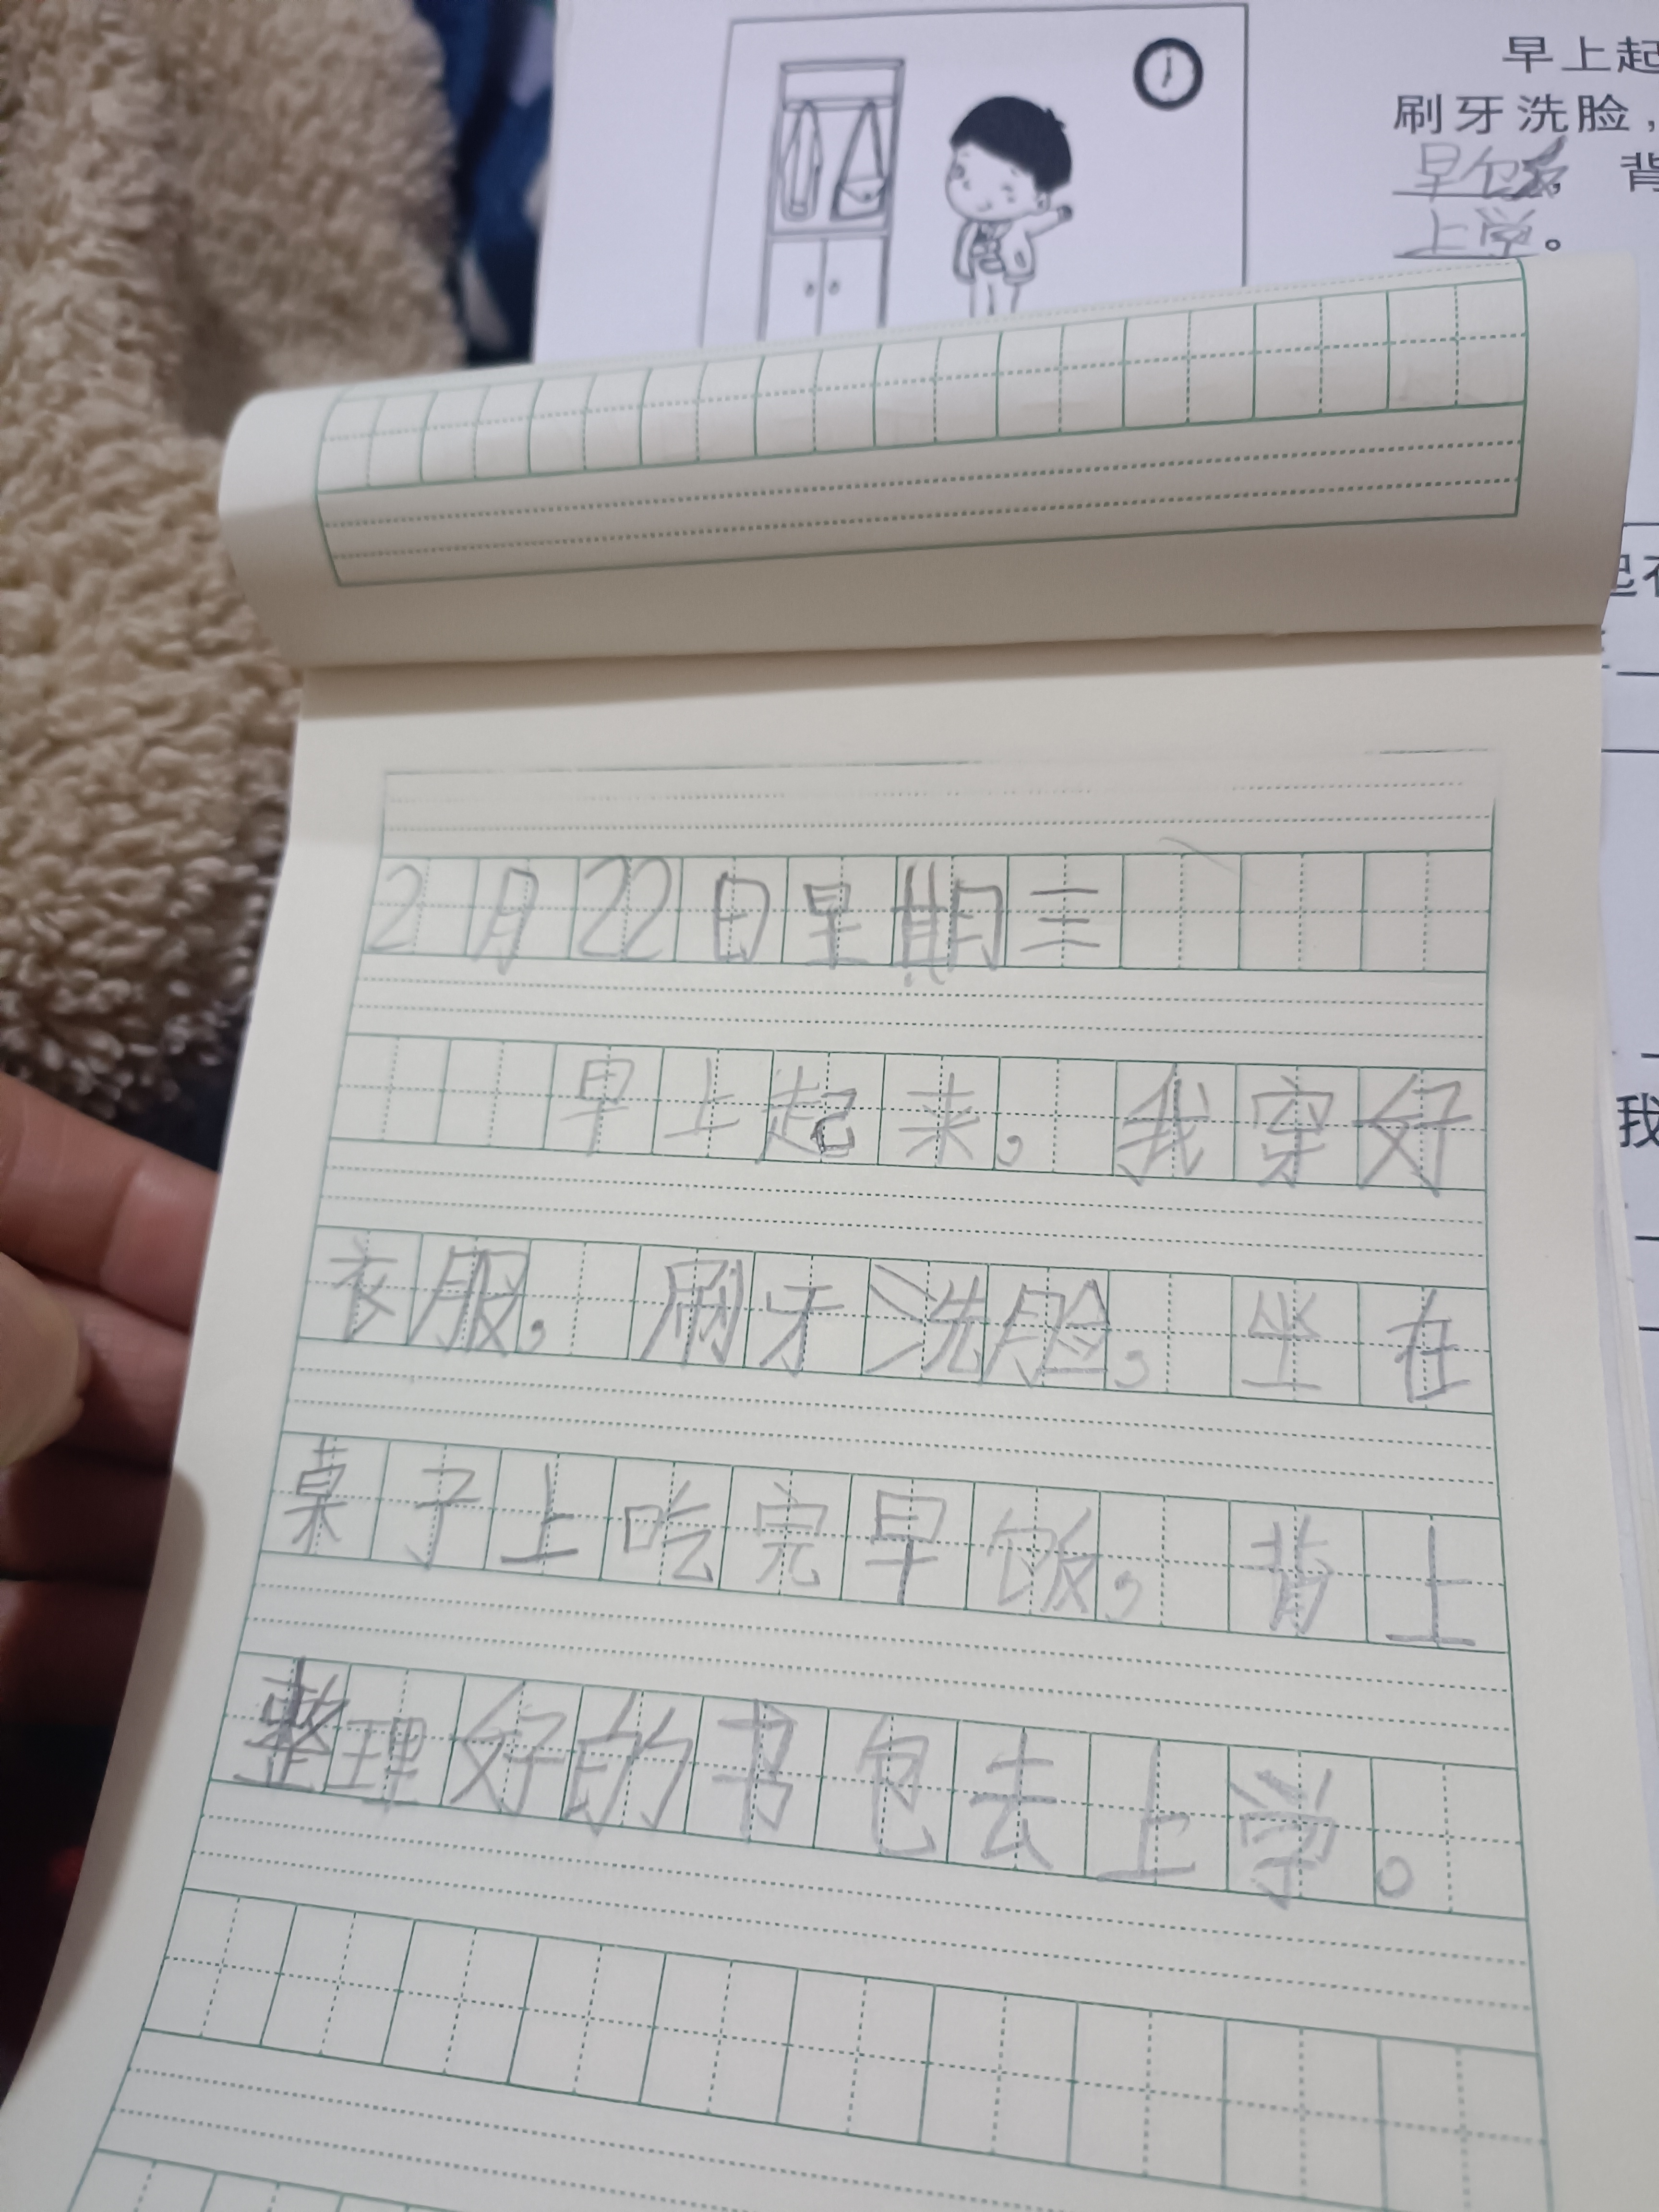 早上起
刷牙洗脸，
早饭， 背
上学。
我
2月22日星期三
早上起来，我穿好
衣服，刷牙洗脸，坐在
桌子上吃完早饭，背上
整理好的书包去上学。